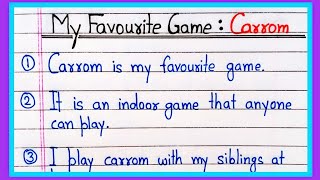 My Favourite Game : Carrom
① Carrom is my favourite game.
② It is an indoor game that anyone
can play.
③ I play carrom with my siblings at